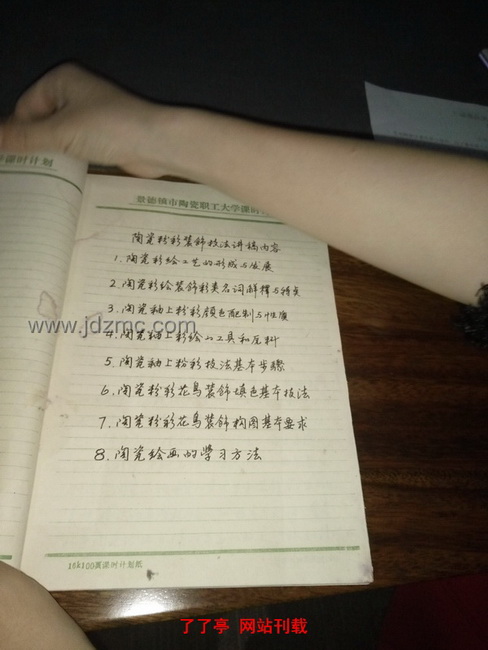 课时计划
景德镇市陶瓷职工大学课时
陶瓷粉彩装饰技法讲稿内容
1.陶瓷彩绘工艺的形成与发展
2.陶瓷彩绘装饰彩类名词解释与特点
3.陶瓷釉上粉彩颜色配制与性质
www.jdzmc.com
4.陶瓷釉上彩绘的工具和原料
5.陶瓷釉上粉彩技法基本步骤
6.陶瓷粉彩花鸟装饰填色基本技法
7.陶瓷粉彩花鸟装饰构图基本要求
8.陶瓷绘画的学习方法
16k100页课时计划纸
了了亭 网站刊载